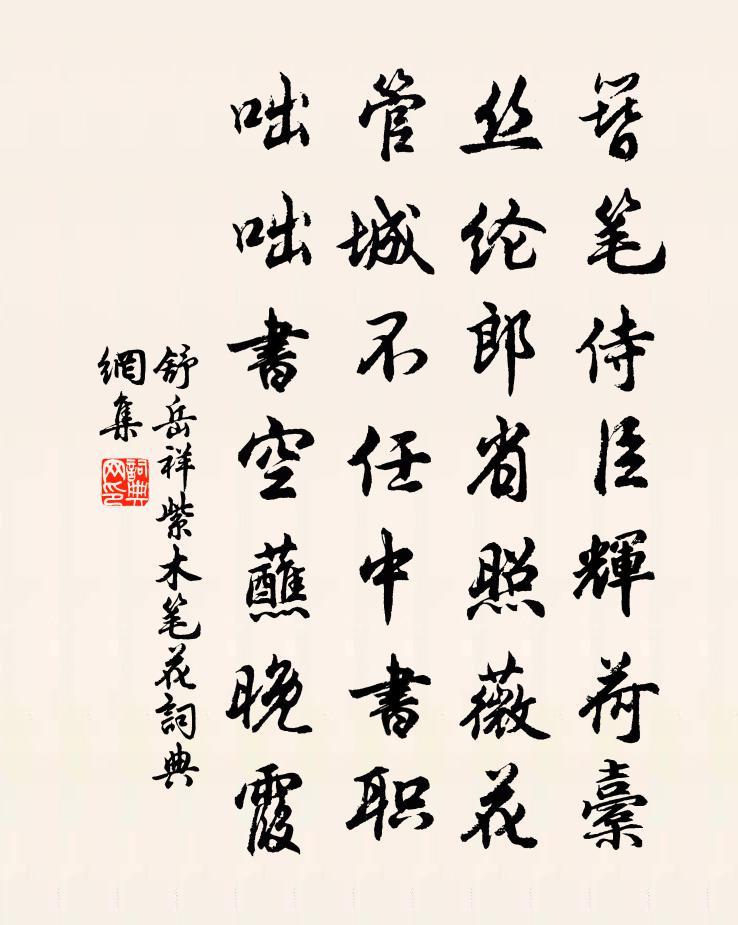 簪笔侍臣輝荷橐
丝纶郎省照薇花
管城不任中書职
咄咄書空蘸晚霞
舒岳祥紫木笔花詞典
網集
詞典網印